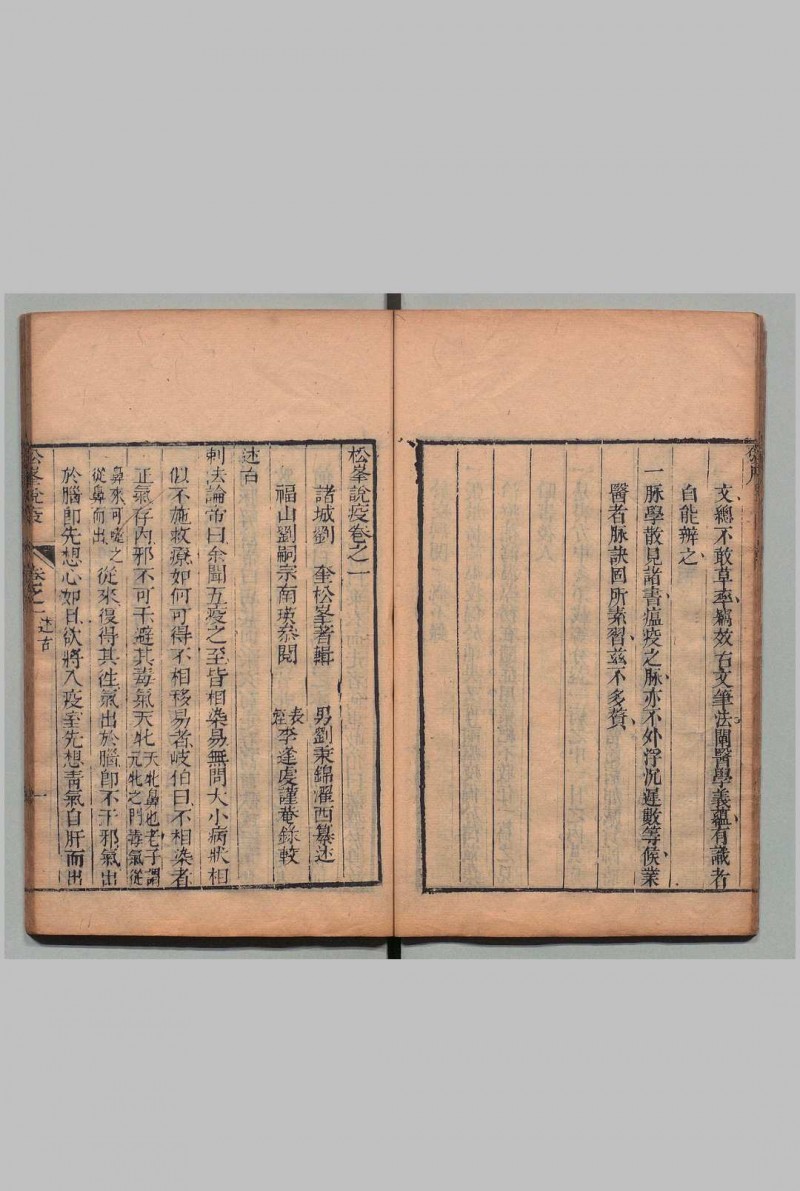 文總不敢草率竊效古文筆法闡醫學義蘊有識者
自能辨之
一脉學散見諸書瘟疫之脉亦不外浮沉遲數等候業
醫者脉訣固所素習茲不多贅
松峯說疫卷之一
諸城劉 奎松峯著輯 男劉秉錦濯西纂述
福山劉嗣宗南瑛叅閱 表姪李逢虔謹菴錄較
述古
刺法論帝曰余聞五疫之至皆相染易無問大小病狀相
似不施救療如何可得不相移易者岐伯曰不相染者
正氣存內邪不可干避其毒氣天牝天牝鼻也老子謂元牝之門毒氣從
鼻來可嚏之從鼻而出從來復得其往氣出於腦卽不干邪氣出
於腦卽先想心如日欲將入疫室先想青氣自肝而出
松峯說疫 卷之一 述古 一